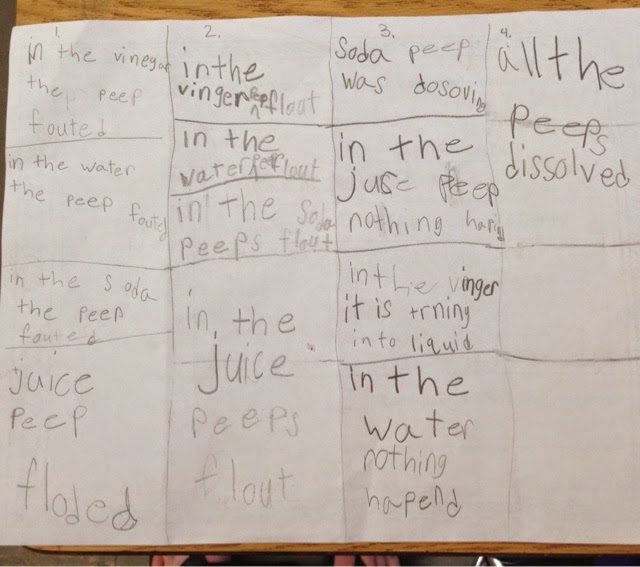 1.
in the vinegar
the peep
fouted
in the water
the peep fouted
in the soda
the peep
fouted
juice
peep
floded
2.
in the
vinger peep flout
in the
water peep flout
in the soda
peeps flout
in the
juice
peeps
flout
3.
Soda peep
was dosoving
in the
jusc peep
nothing hapnd
in the vinger
it is trning
into liquid
in the
water
nothing
hapend
4.
all the
peeps
dissolved